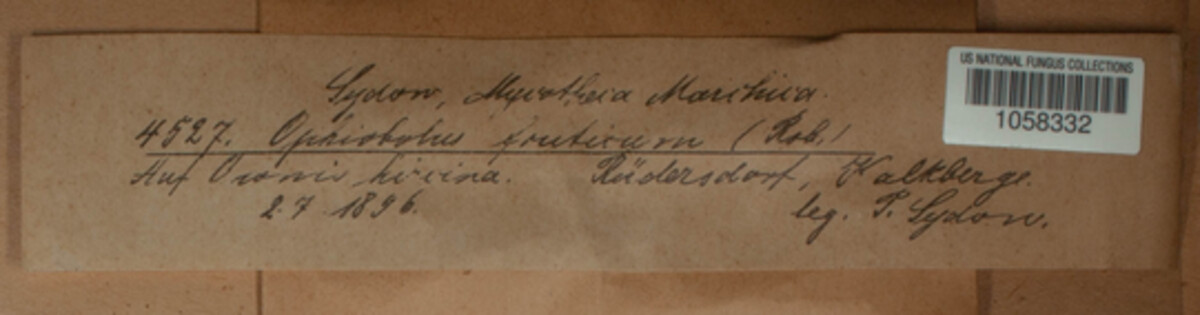 Sydow, Mycotheca Marchica.
4527. Ophiobolus fruticum (Rob.)
Auf Ononis hircina. Rüdersdorf, Kalkberge.
2.7 1896. leg. P. Sydow.
US NATIONAL FUNGUS COLLECTIONS
1058332